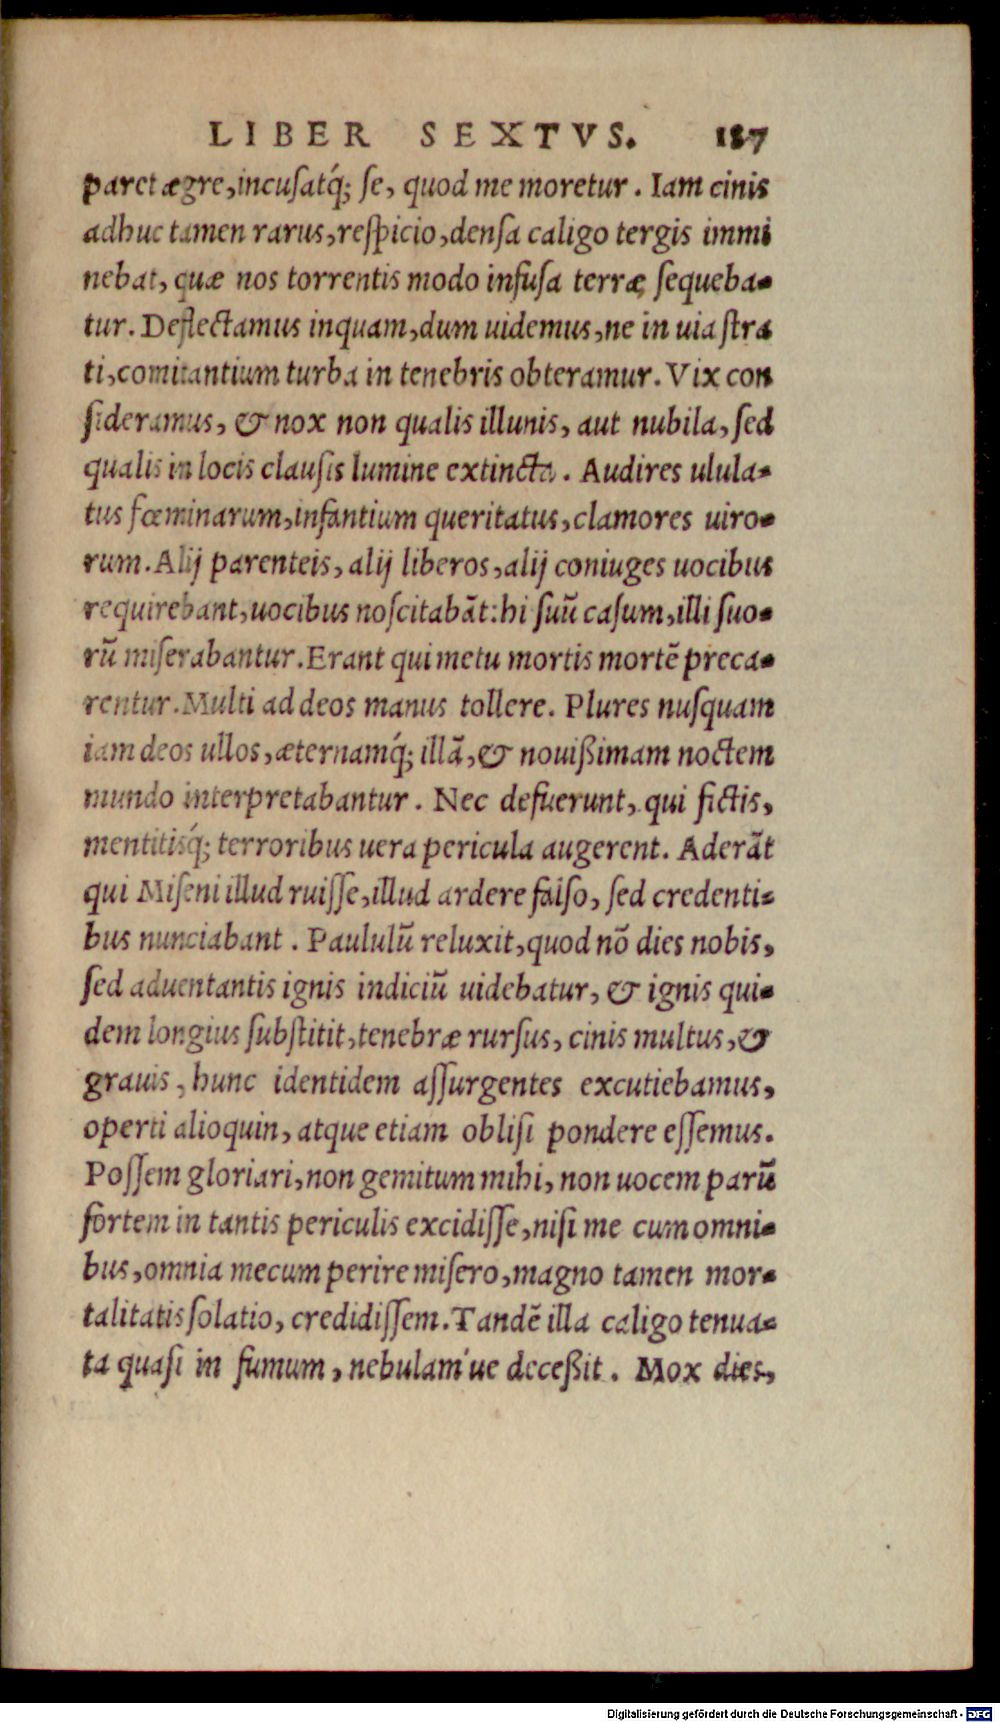 LIBER SEXTVS. 187
paret ægre, incusatq́; se, quod me moretur. Iam cinis
adhuc tamen rarus, respicio, densa caligo tergis immi
nebat, quæ nos torrentis modo infusa terræ sequeba-
tur. Deflectamus inquam, dum uidemus, ne in uia stra
ti, comitantium turba in tenebris obteramur. Vix con
sideramus, & nox non qualis illunis, aut nubila, sed
qualis in locis clausis lumine extincta. Audires ulula-
tus fœminarum, infantium queritatus, clamores uiro-
rum. Alij parenteis, alij liberos, alij coniuges uocibus
requirebant, uocibus noscitabāt: hi suū casum, illi suo-
rū miserabantur. Erant qui metu mortis mortē preca-
rentur. Multi ad deos manus tollere. Plures nusquam
iam deos ullos, æternamq́; illā, & nouißimam noctem
mundo interpretabantur. Nec defuerunt, qui fictis,
mentitisq́; terroribus uera pericula augerent. Aderāt
qui Miseni illud ruisse, illud ardere falso, sed credenti-
bus nunciabant. Paululū reluxit, quod nō dies nobis,
sed aduentantis ignis indiciū uidebatur, & ignis qui-
dem longius substitit, tenebræ rursus, cinis multus, &
grauis, hunc identidem assurgentes excutiebamus,
operti alioquin, atque etiam oblisi pondere essemus.
Possem gloriari, non gemitum mihi, non uocem parū
fortem in tantis periculis excidisse, nisi me cum omni-
bus, omnia mecum perire misero, magno tamen mor-
talitatis solatio, credidissem. Tandē illa caligo tenua-
ta quasi in fumum, nebulam'ue deceßit. Mox dies,
Digitalisierung gefördert durch die Deutsche Forschungsgemeinschaft - DFG